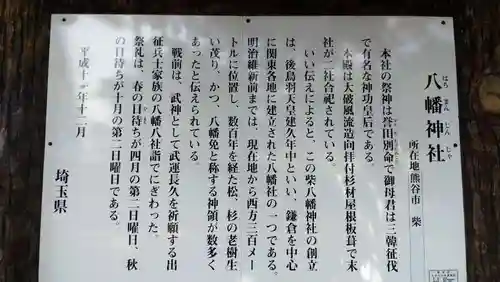 八幡神社
はちまんじんじゃ
所在地 熊谷市 柴
本社の祭神は誉田別命で御母君は三韓征伐
で有名な神功皇后である。
本殿は大破風流造向拝付杉材屋根板葺で末
社が二社合祀されている。
いい伝えによると、この柴八幡神社の創立
は、後鳥羽天皇建久年中といい、鎌倉を中心
に関東各地に建立された八幡社の一つである。
明治維新前までは、現在地から西方三百メー
トルに位置し、数百年を経た松、杉の老樹生
い茂り、かつ、八幡免と称する神領が数多く
あったと伝えられている。
戦前は、武神として武運長久を祈願する出
征兵士家族の八幡八社詣でにぎわった。
祭礼は、春の日待ちが四月の第二日曜日、秋
の日待ちが十月の第二日曜日である。
平成十一年十二月
埼玉県